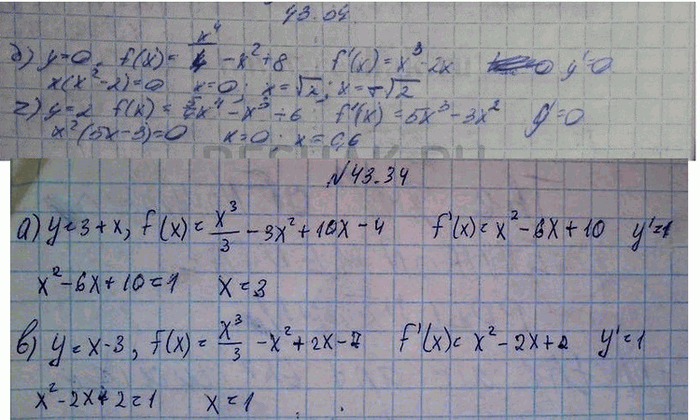 43.04.
б) y=0, f(x) = x⁴/4 - x²+8 f'(x) = x³-2x y'=0
x(x²-2)=0 x=0; x=√2; x=-√2
г) y=2 f(x) = 5/4x⁴-x³+6 f'(x) = 5x³-3x² y'=0
x²(5x-3)=0 x=0; x=0,6
№43.34
а) y=3+x, f(x)= x³/3 -3x²+10x-4 f'(x)=x²-6x+10 y'=1
x²-6x+10=1 x=3
в) y=x-3, f(x)= x³/3 -x²+2x-7 f'(x)=x²-2x+2 y'=1
x²-2x+2=1 x=1